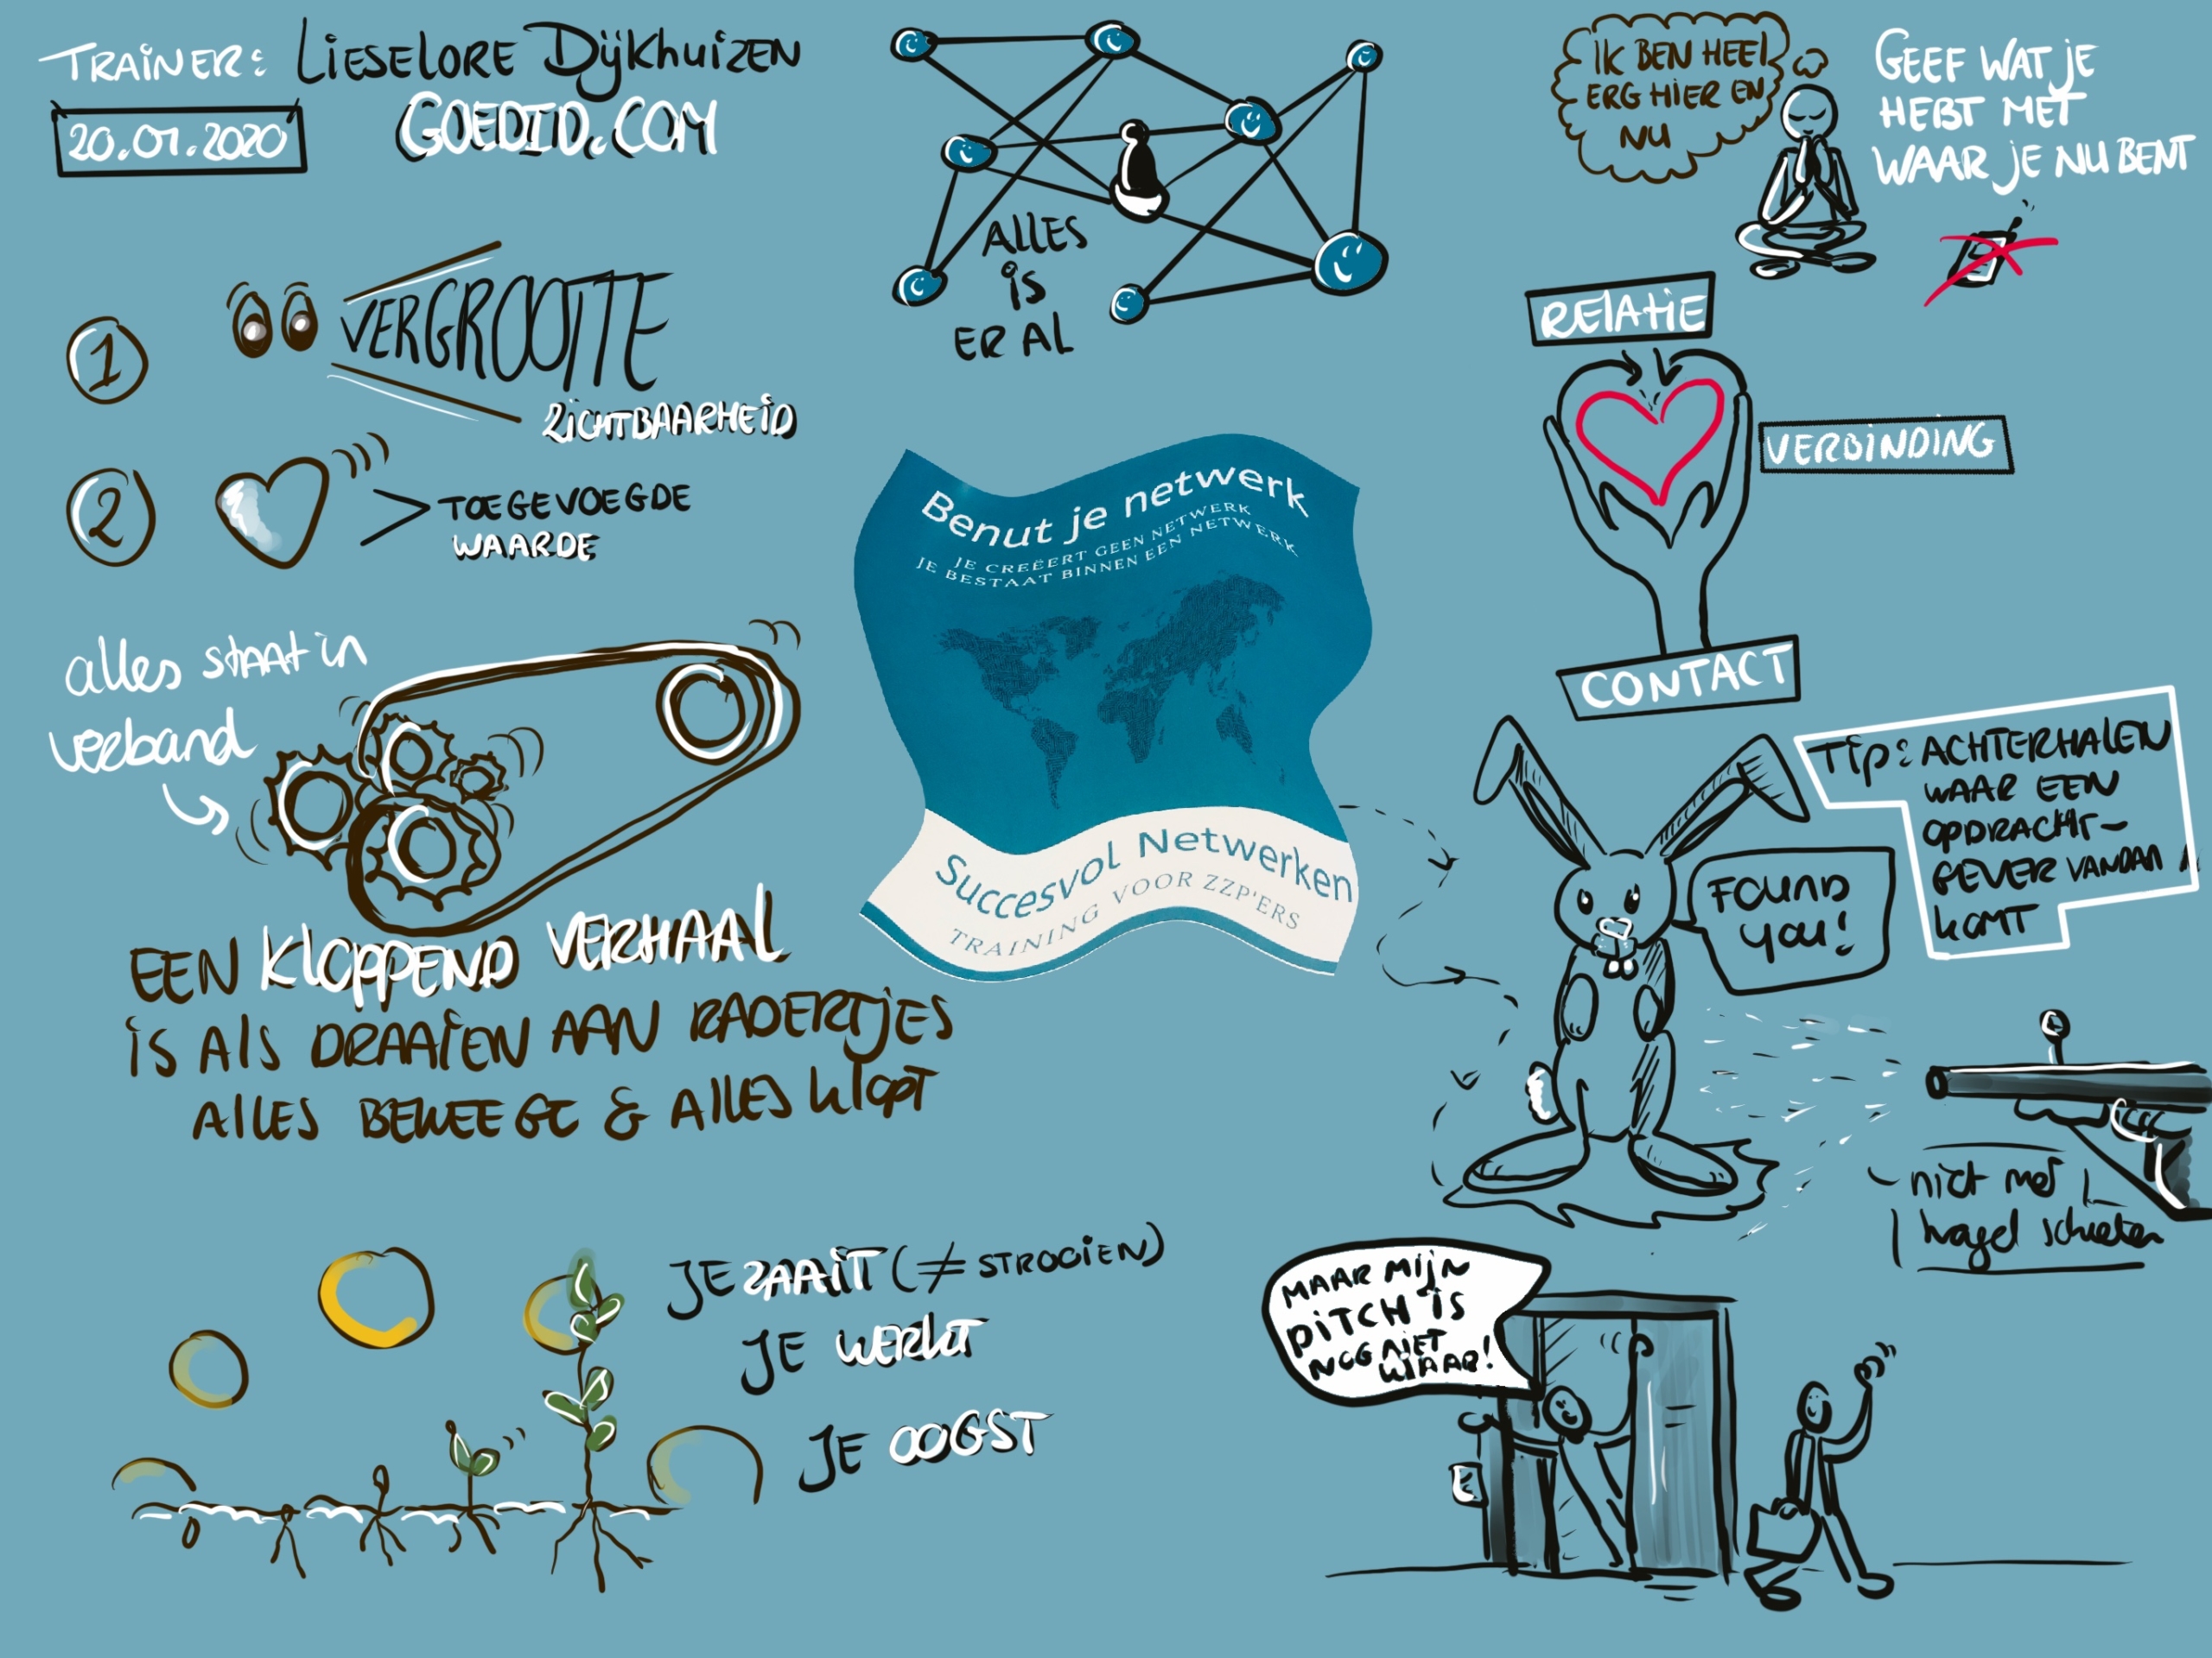 TRAINER: LIESELORE DIJKHUIZEN
20.01.2020
GOEDID.COM
1
VERGROOTTE
ZICHTBAARHEID
2
> TOEGEVOEGDE
WAARDE
alles staat in
verband
EEN KLOPPEND VERHAAL
IS ALS DRAAIEN AAN RADERTJES
ALLES BEWEEGT & ALLES KLOPT
JE ZAAIT (≠ STROOIEN)
JE WERKT
JE OOGST
ALLES
IS
ER AL
Benut je netwerk
JE CREËERT GEEN NETWERK
JE BESTAAT BINNEN EEN NETWERK
Succesvol Netwerken
TRAINING VOOR ZZP'ERS
IK BEN HEEL
ERG HIER EN
NU
GEEF WAT JE
HEBT MET
WAAR JE NU BENT
RELATIE
VERBINDING
CONTACT
TIP: ACHTERHALEN
WAAR EEN
OPDRACHT-
GEVER VANDAAN
KOMT
FOUND
YOU!
niet met
hagel schieten
MAAR MIJN
PITCH IS
NOG NIET
KLAAR!